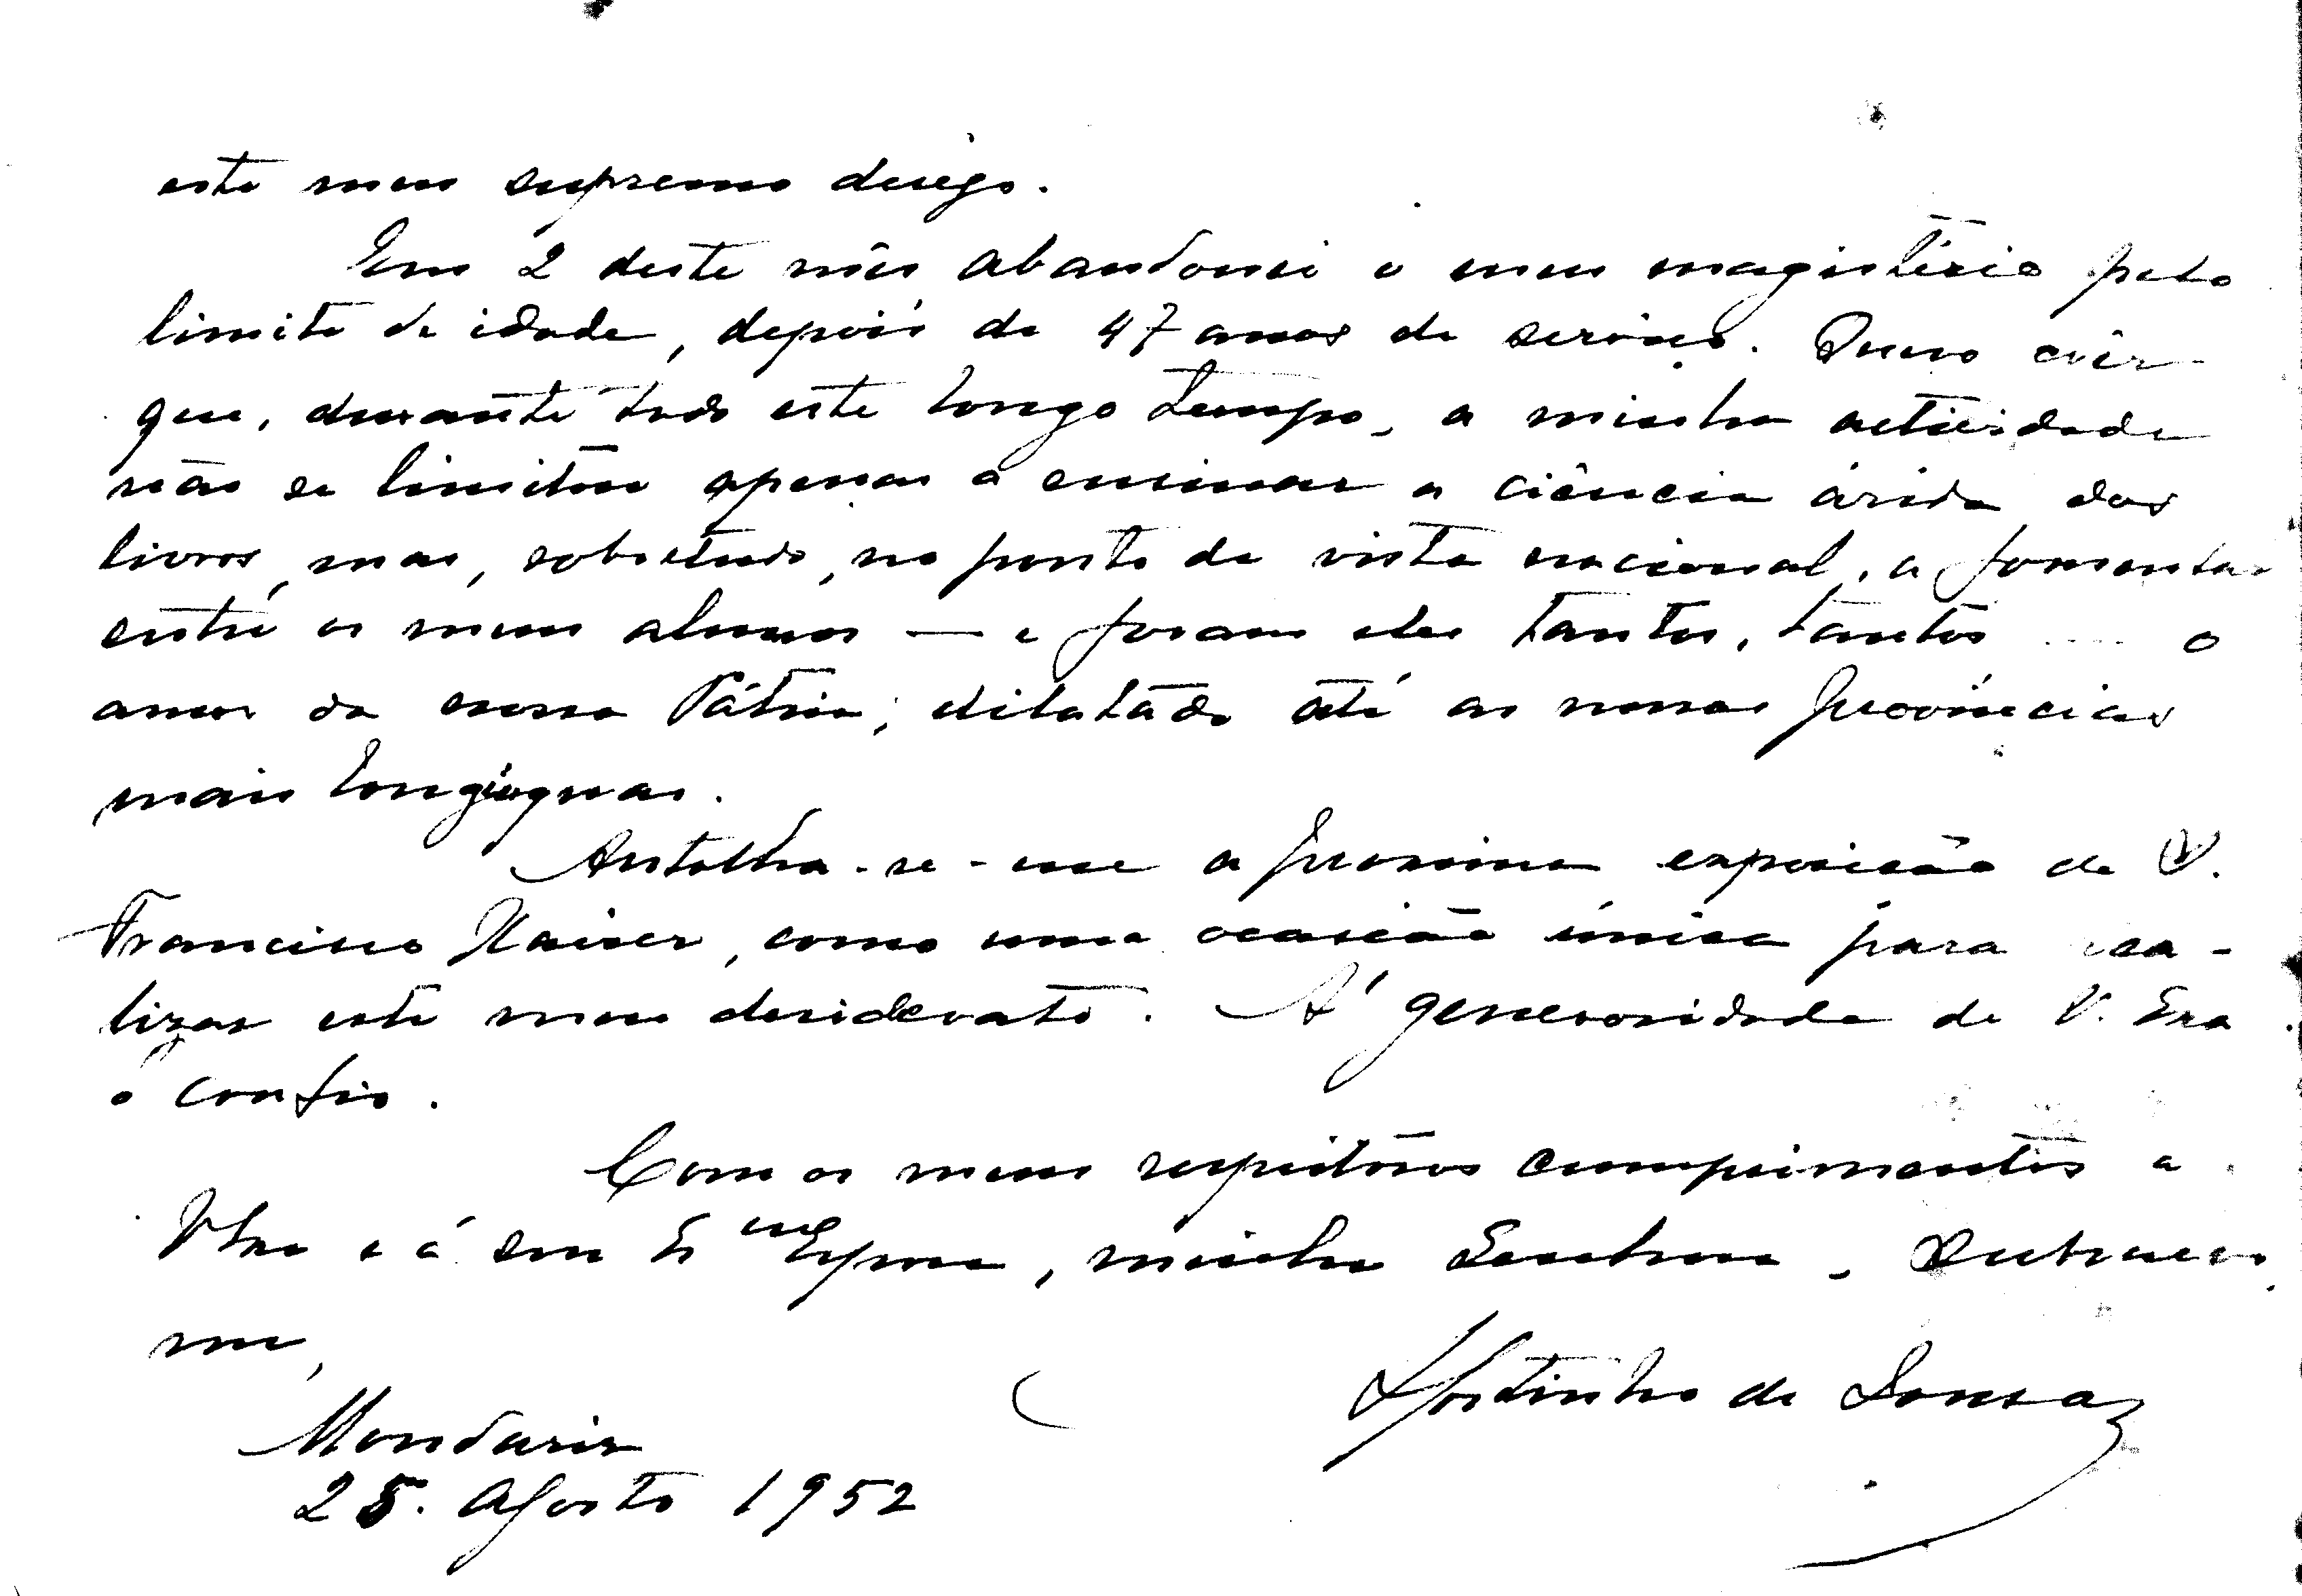 este meu supremo desejo.
Em 2 deste mês abandonei o meu magistério pelo
limite de idade, depois de 47 anos de serviço. Quero crêr
que, durante todo este longo tempo, a minha actividade
não se limitou apenas a ensinar a ciência árida dos
livros, mas, sobretudo, no ponto de vista nacional, a fomentar
entre os meus alunos — e foram eles tantos, tantos — o
amor da nossa Pátria, dilatada até as nossas províncias
mais longínquas.
Antolha-se-me a proxima exposição de
Francisco Xavier, como uma ocasião única para rea-
lizar este meu desiderato. A' generosidade de V. Exa
o confio.
Com os meus respeitosos cumprimentos a
V Exa e á sua Exma Esposa, minha Senhora,
me,
Agostinho de Sousa
Mondariz
25. Agosto 1952